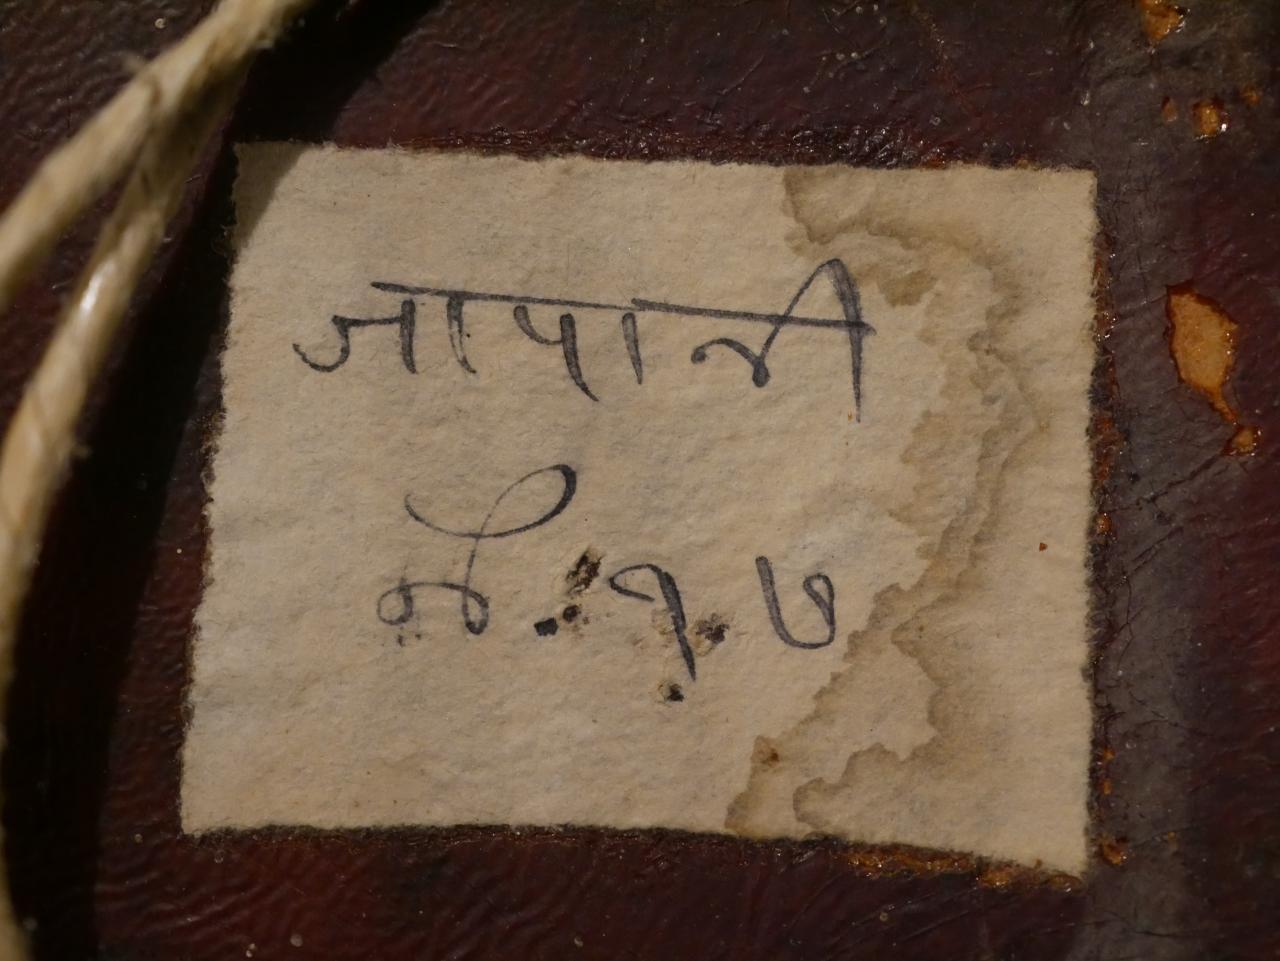 जापानी
नं. १७